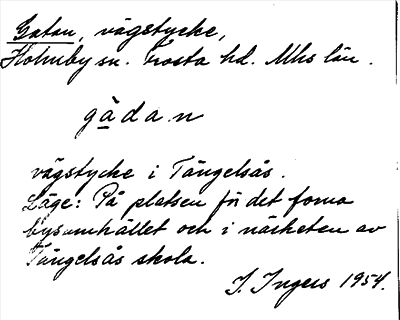 Gatan, vägstycke,
Holmby sn. Frosta hd. Mhs län.
gàdan
vägstycke i Tängelsås.
Läge: På platsen för det forna
bysamhället och i närheten av
Tängelsås skola.
I. Ingers 1954.